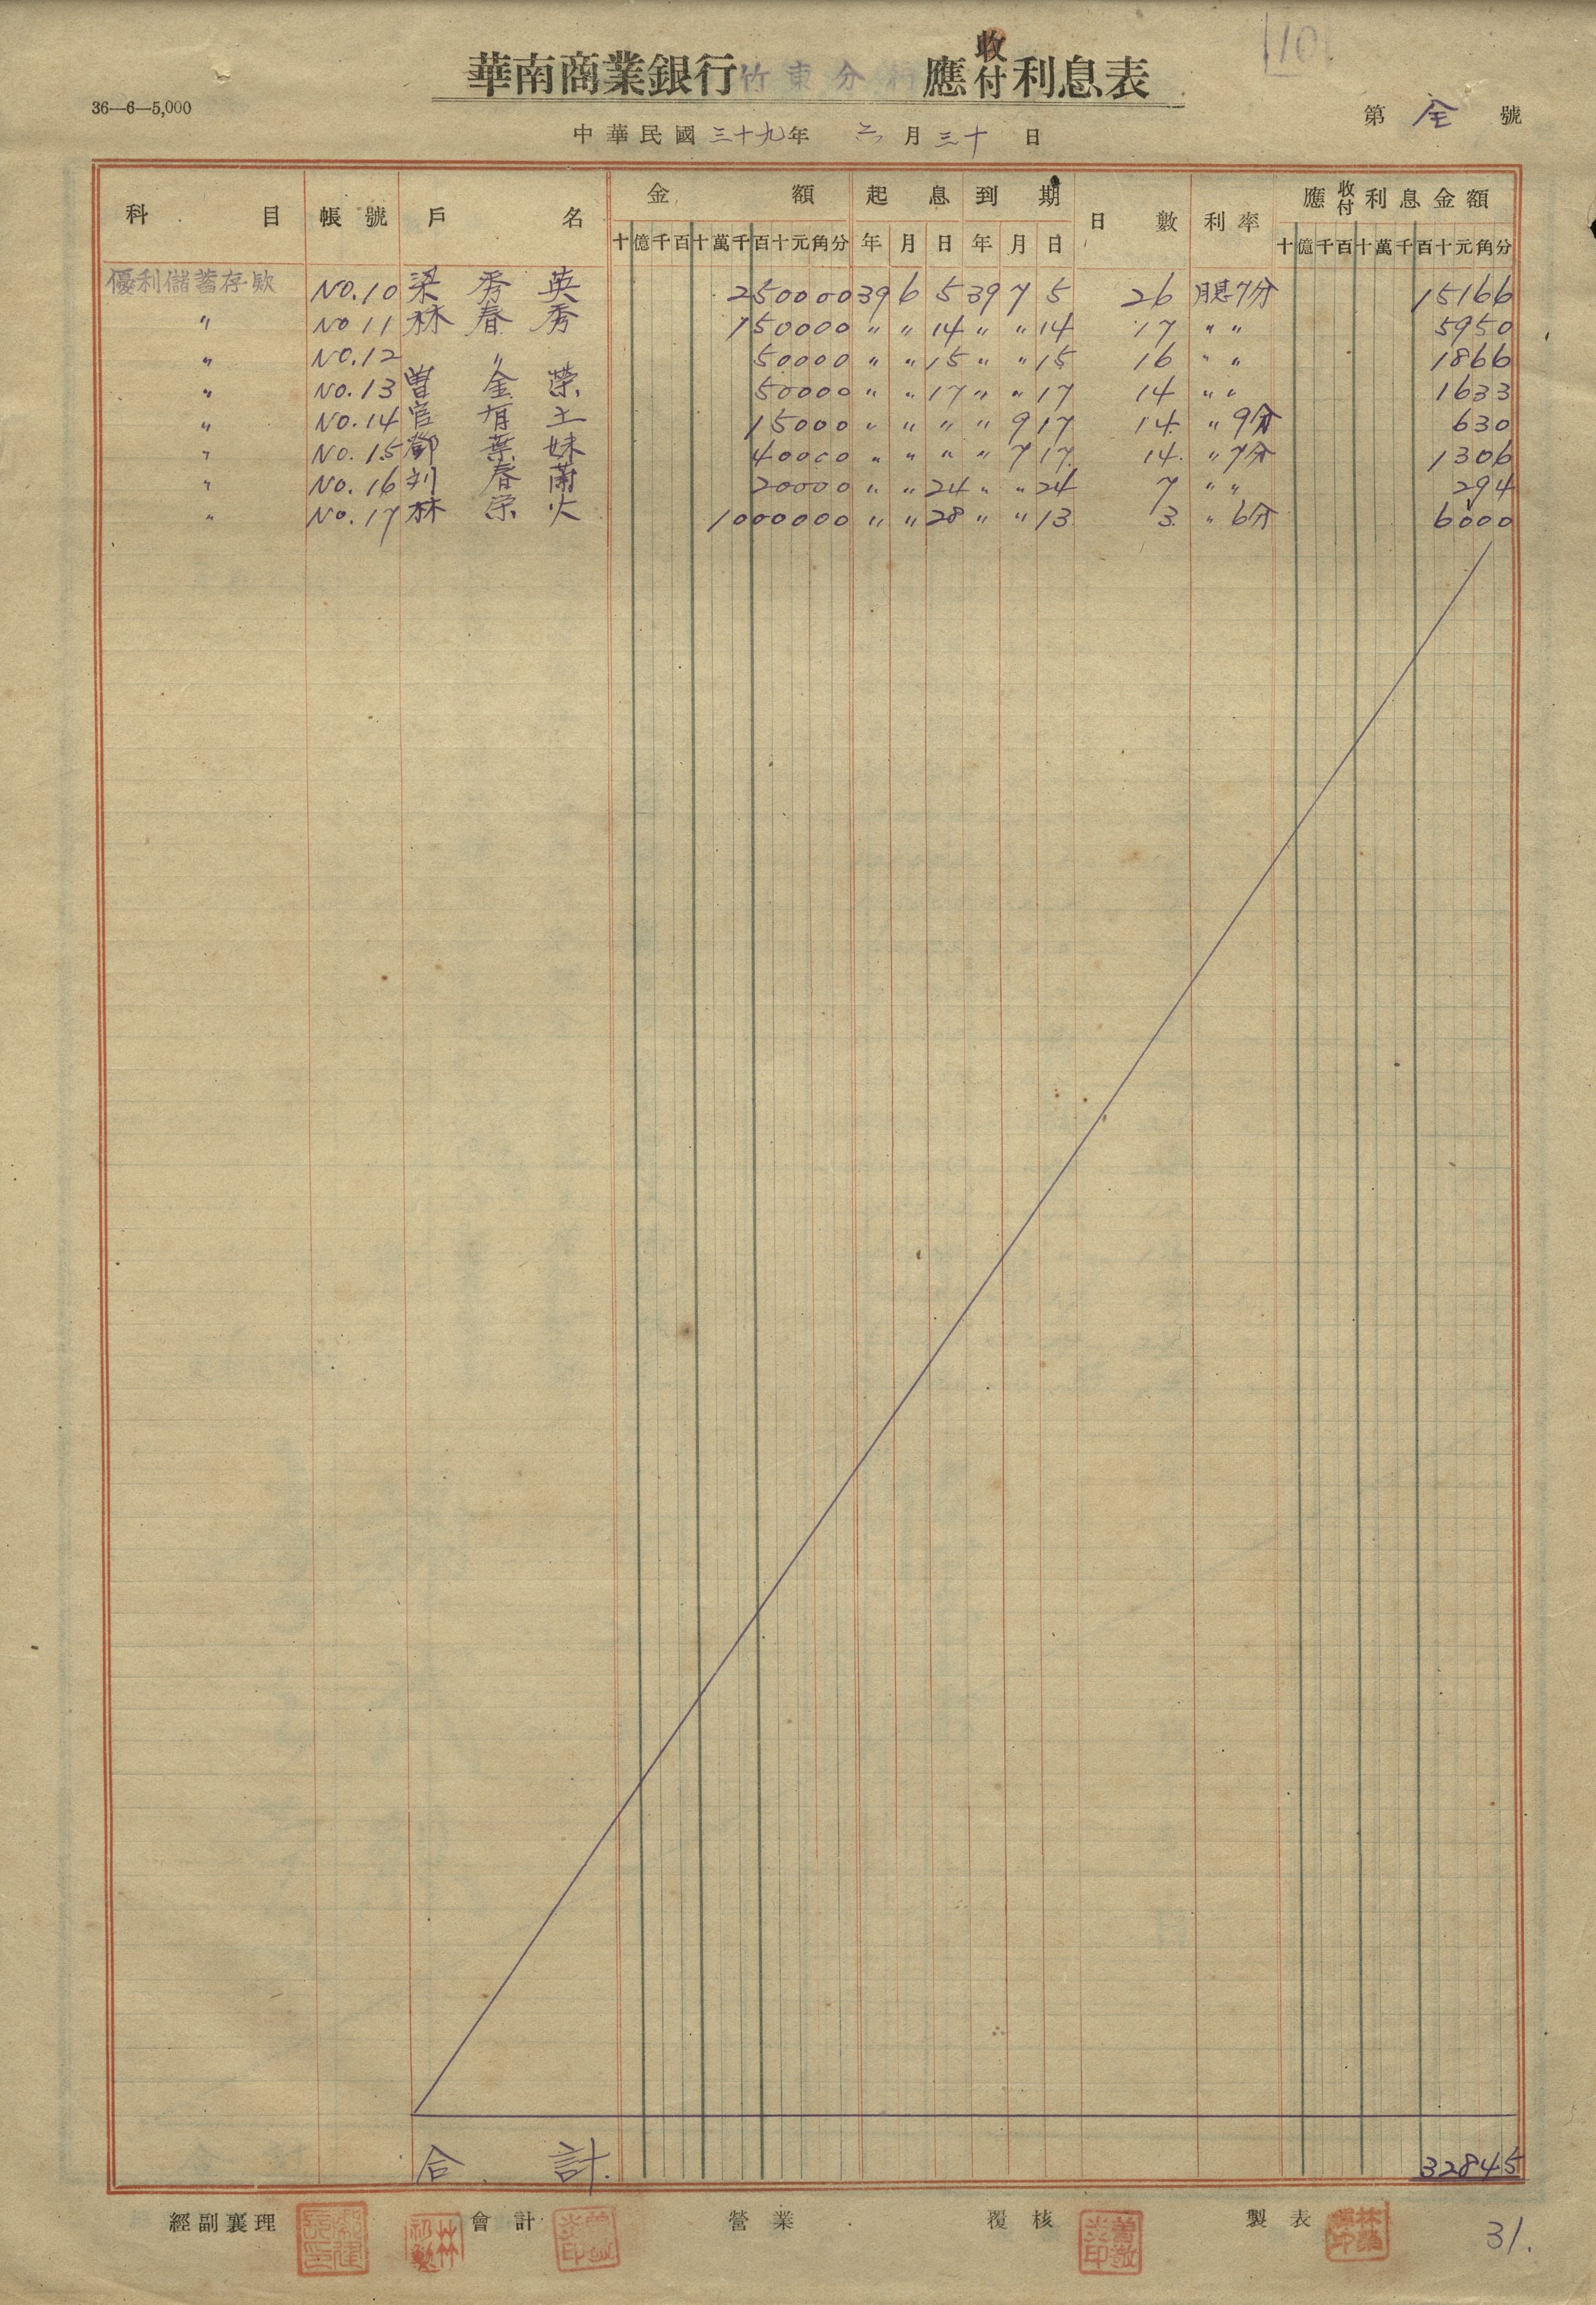 110
華南商業銀行竹東分行應收付利息表
36—6—5,000
第 全 號
中華民國三十九年 六月三十日
科目 帳號 戶名 金額 起息 到期 日數 利率 應收付利息金額
十億千百十萬千百十元角分 年月日 年月日 十億千百十萬千百十元角分
優利儲蓄存款 NO.10 梁秀英 250000 39 6 5 39 7 5 26 月息7分 15166
〃 NO 11 林春秀 150000 〃 〃 14 〃 〃 14 17 〃 〃 5950
〃 NO.12 〃 50000 〃 〃 15 〃 〃 15 16 〃 〃 1866
〃 NO.13 曾金榮 50000 〃 〃 17 〃 〃 17 14 〃 〃 1633
〃 NO.14 官有土 15000 〃 〃 〃 〃 9 17 14 〃 9分 630
〃 NO.15 鄧葉妹 40000 〃 〃 〃 〃 7 17 14 〃 7分 1306
〃 NO.16 刘春蘭 20000 〃 〃 24 〃 〃 24 7 〃 〃 294
〃 NO.17 林荣火 1000000 〃 〃 28 〃 〃 13 3 〃 6分 6000
合計 32845
經副襄理 會計 營業 覆核 製表
31.